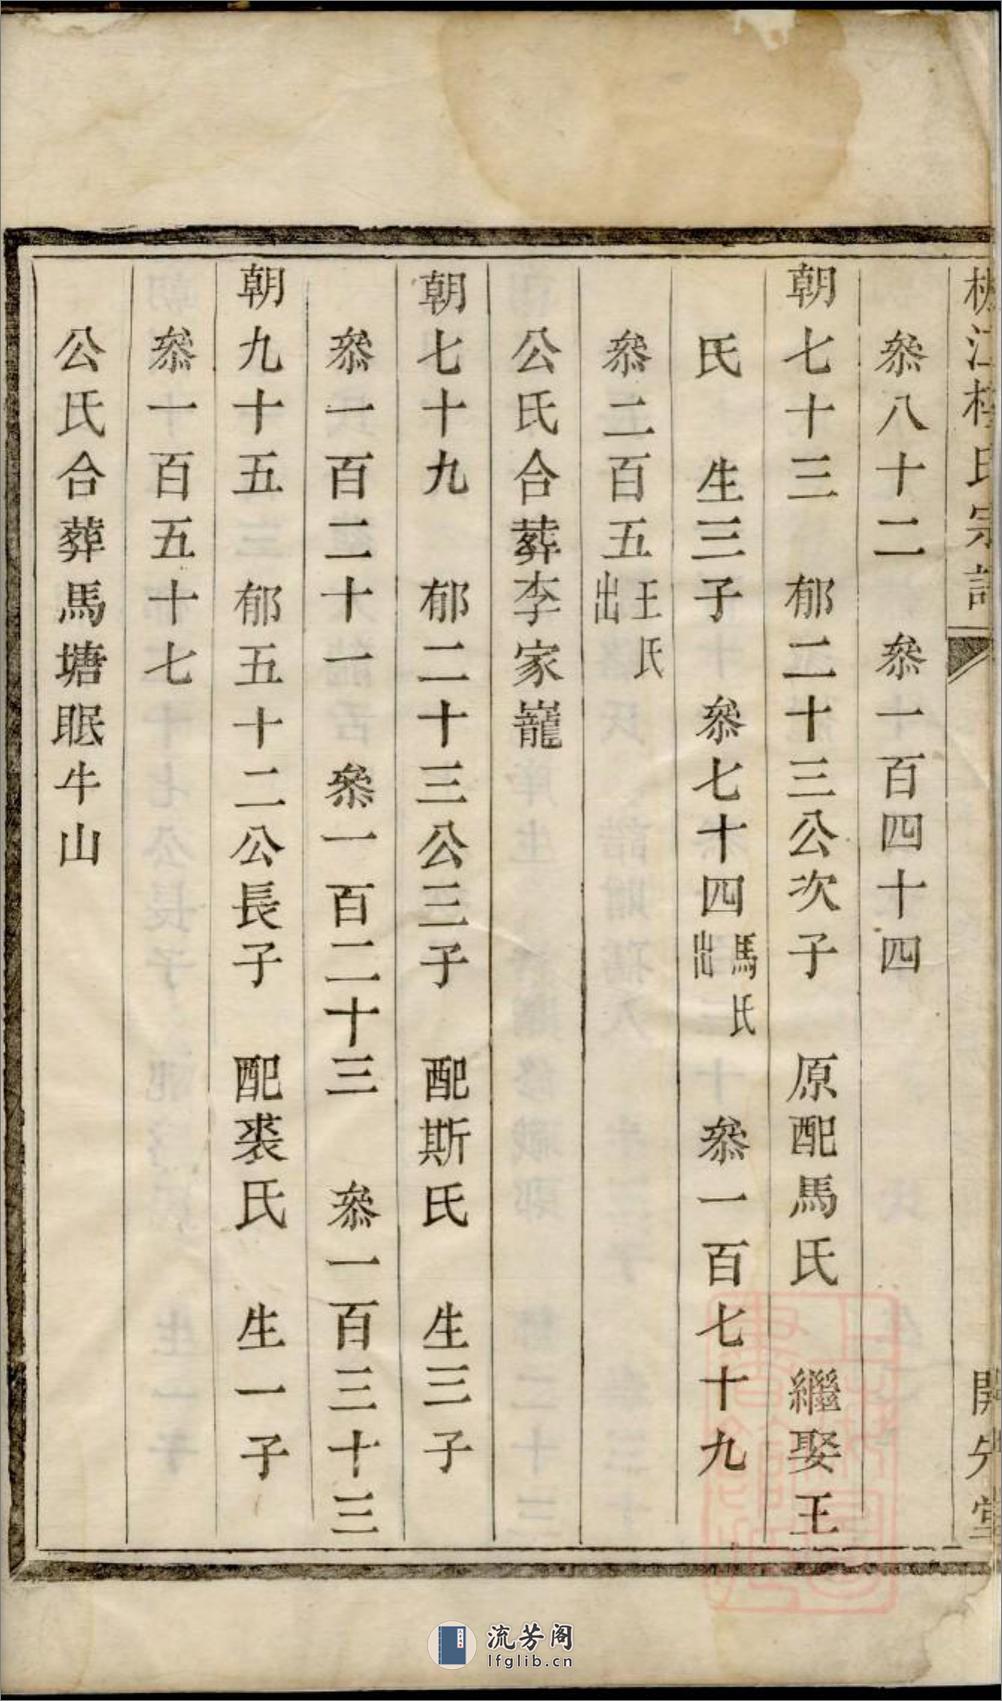 江 氏宗譜 開先堂
叅八十二 叅一百四十四
朝七十三 郁二十三公次子 原配馬氏 繼娶王
氏 生三子 叅七十四馬氏出 叅一百七十九
叅二百五王氏出
公氏合葬李家巃
朝七十九 郁二十三公三子 配斯氏 生三子
叅一百二十一 叅一百二十三 叅一百三十三
朝九十五 郁五十二公長子 配裘氏 生一子
叅一百五十七
公氏合葬馬塘眠牛山
流芳阁
lfglib.cn